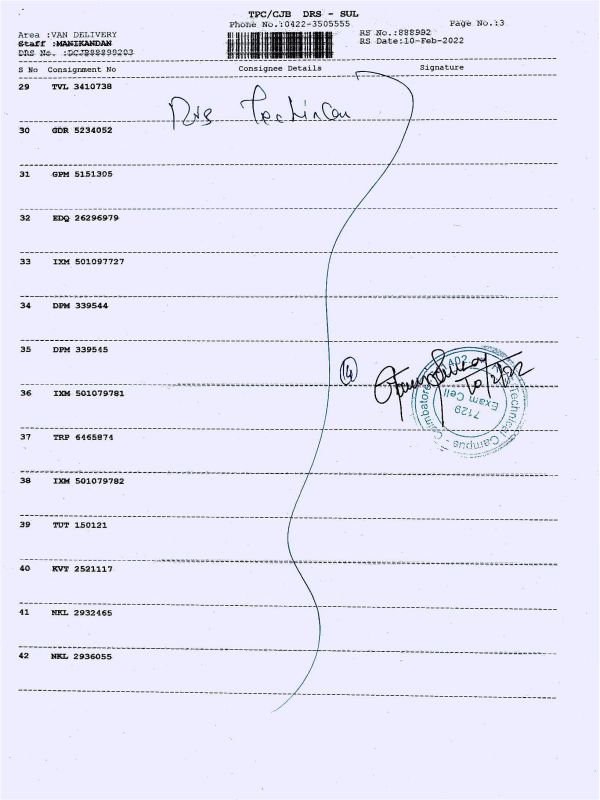 TPC/CJB DRS - SUL
Phone No.:0422-3505555 Page No.:3
Area :VAN DELIVERY RS No.:888992
Staff :MANIKANDAN RS Date:10-Feb-2022
DRS No. :DCJB88899203
S No Consignment No Consignee Details Signature
29 TVL 3410738
30 GDR 5234052
31 GPM 5151305
32 EDQ 26296979
33 IXM 501097727
34 DPM 339544
35 DPM 339545
14
36 IXM 501079781
Technical Campus - Coimbatore
Exam Cell
7129
37 TRP 6465874
38 IXM 501079782
39 TUT 150121
40 KVT 2521117
41 NKL 2932465
42 NKL 2936055